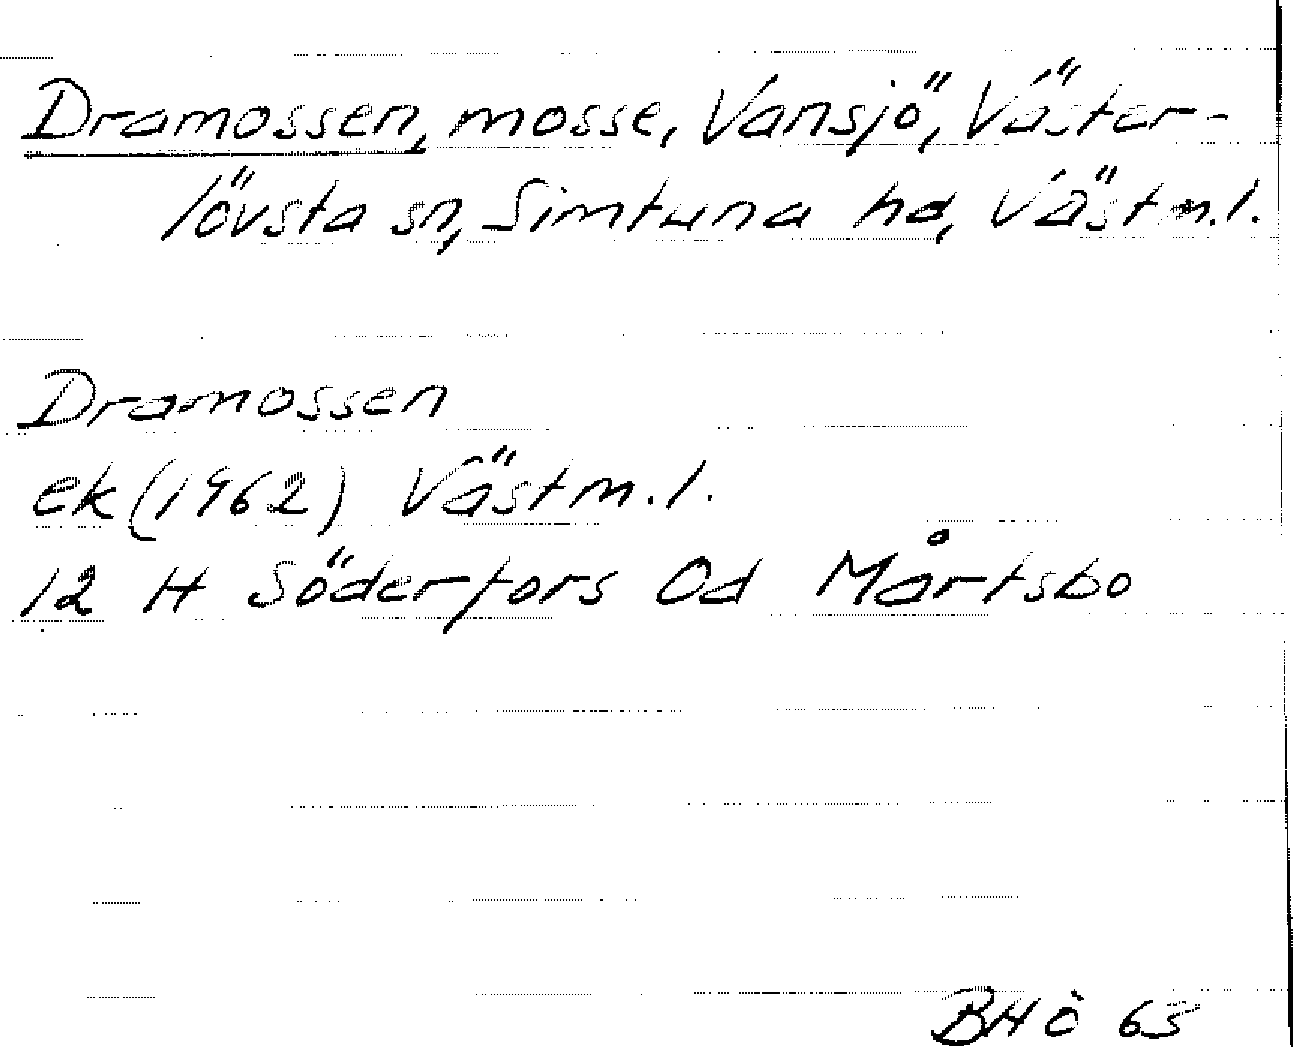 Dramossen, mosse, Vansjö, Väster-
lövsta sn, Simtuna hd, Västm.l.
Dramossen
ek (1962) Västm.l.
12 H Söderfors 0d Mårtsbo
BHÖ 63